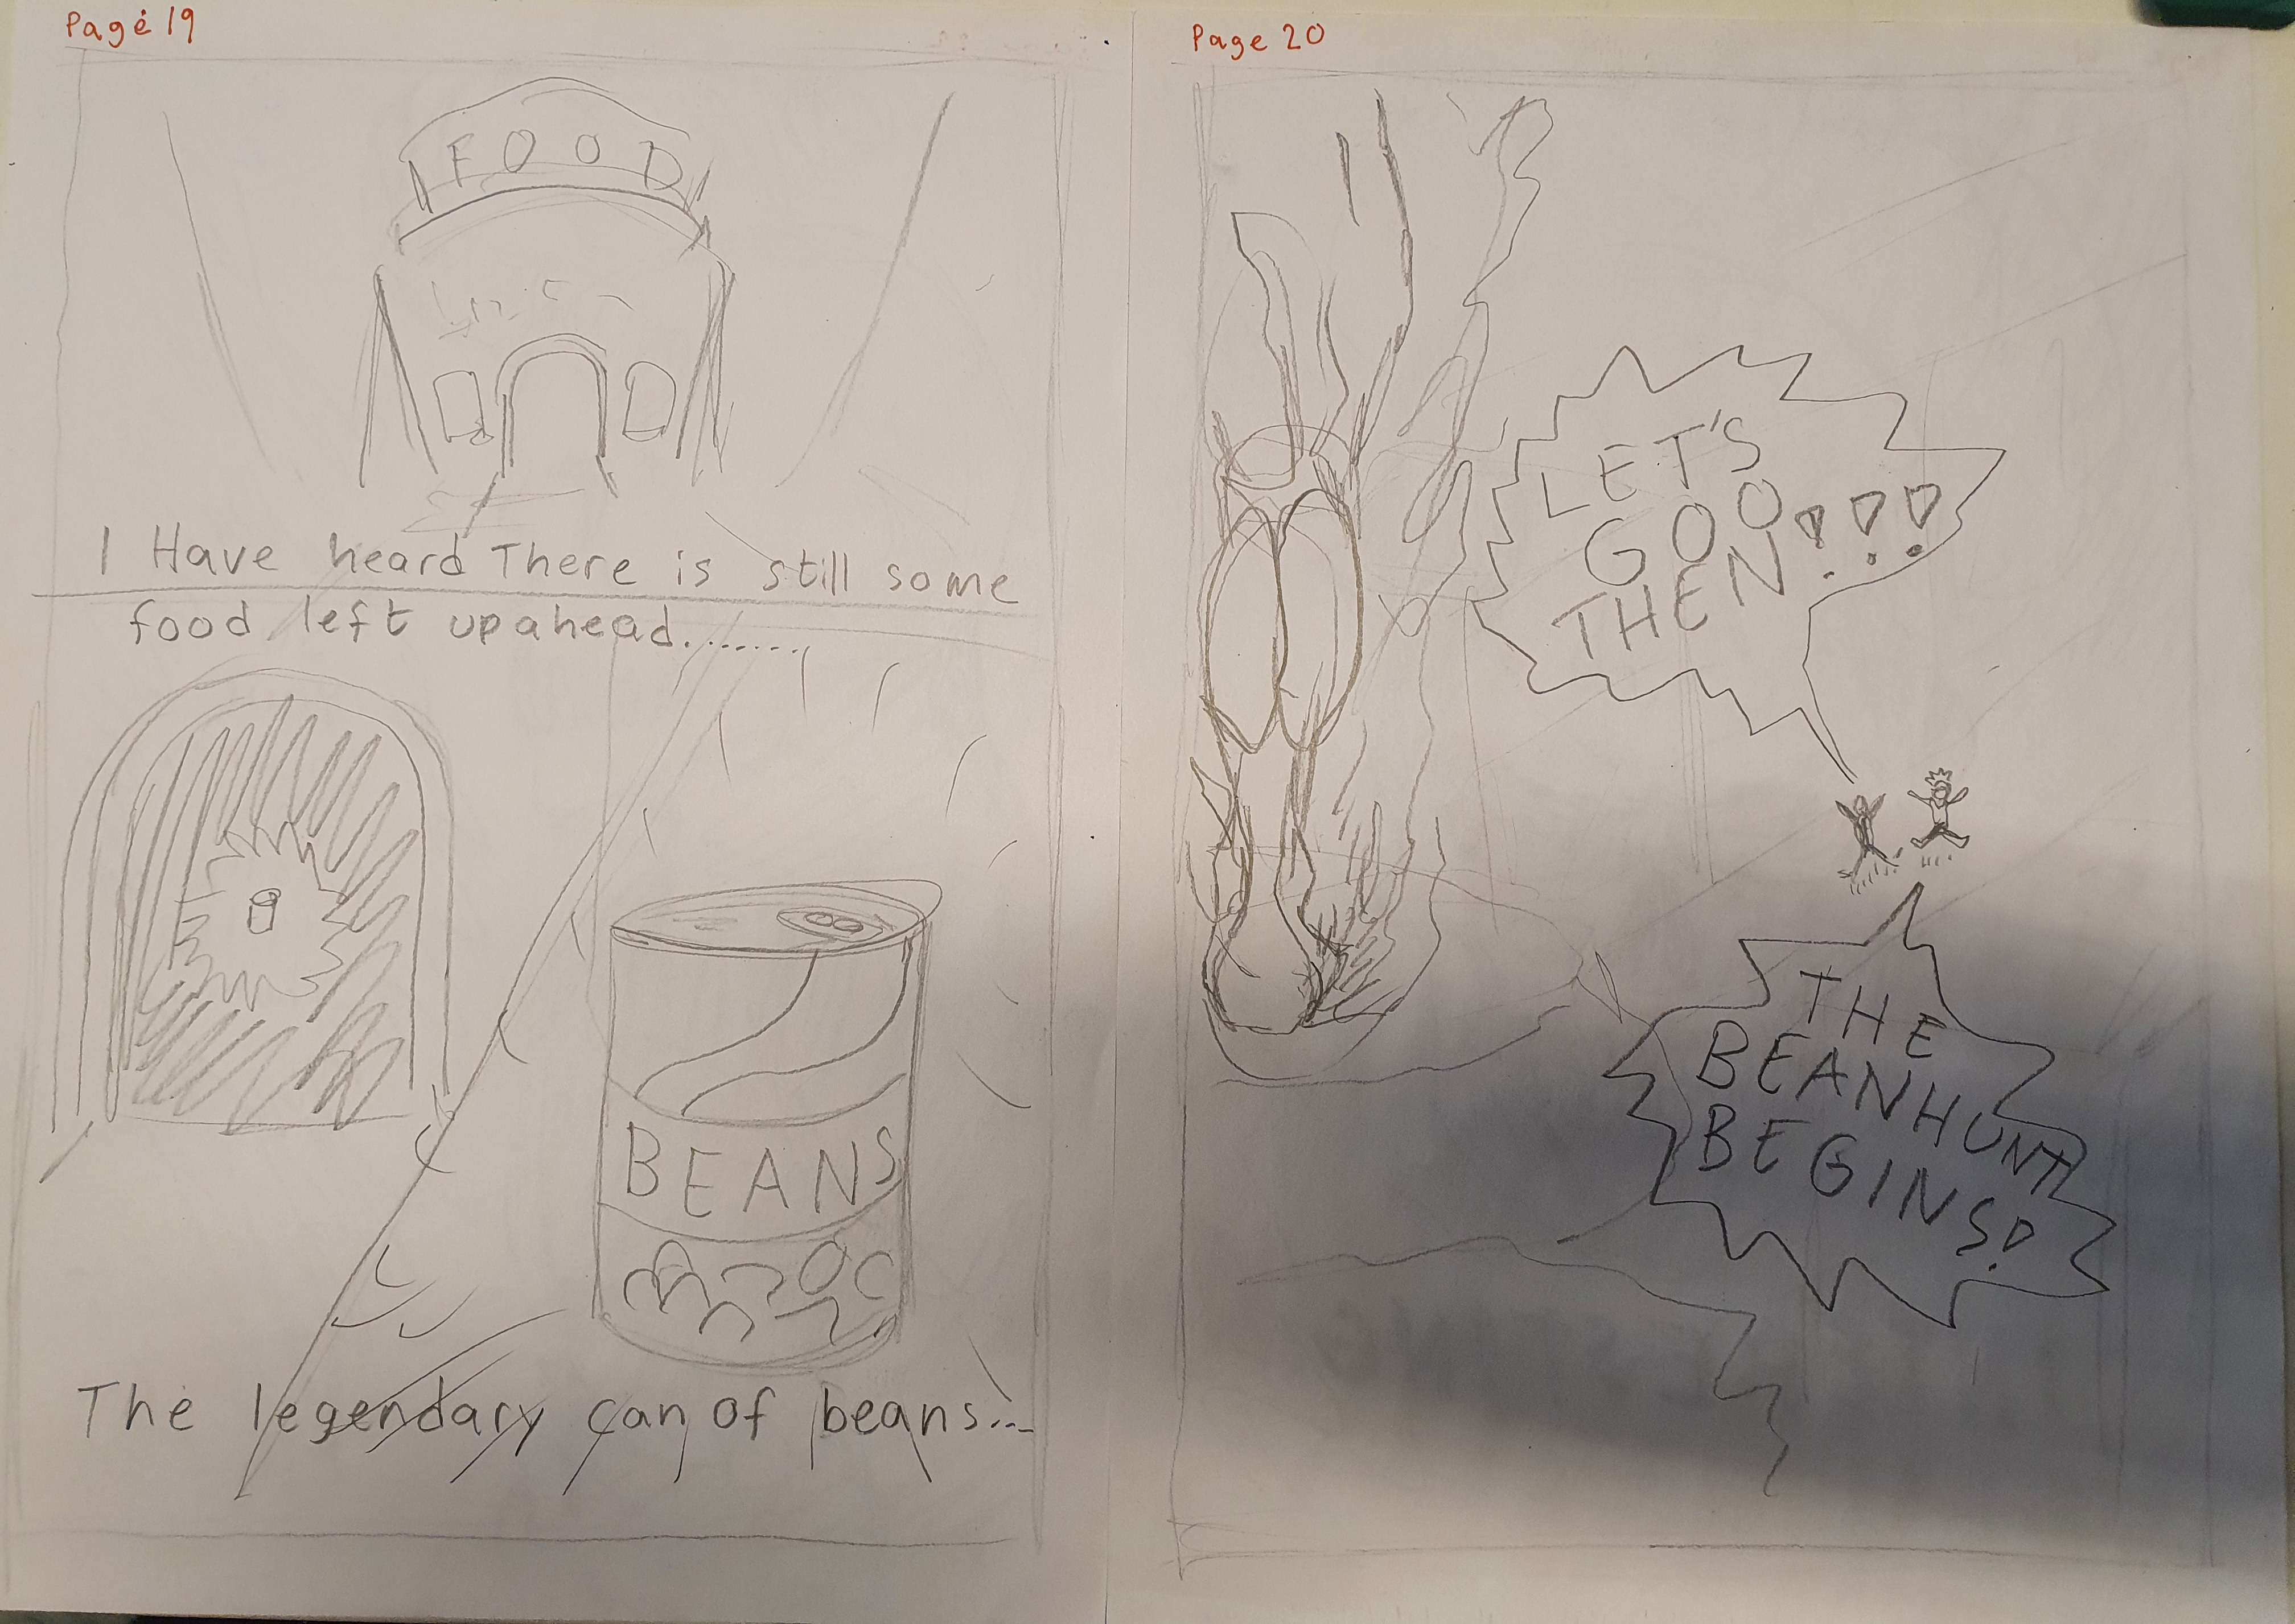 Page 19
FOOD
I Have heard There is still some
food left up ahead........
BEANS
The legendary can of beans...
Page 20
LET'S
GOO
THEN!!!
THE
BEANHUNT
BEGINS!